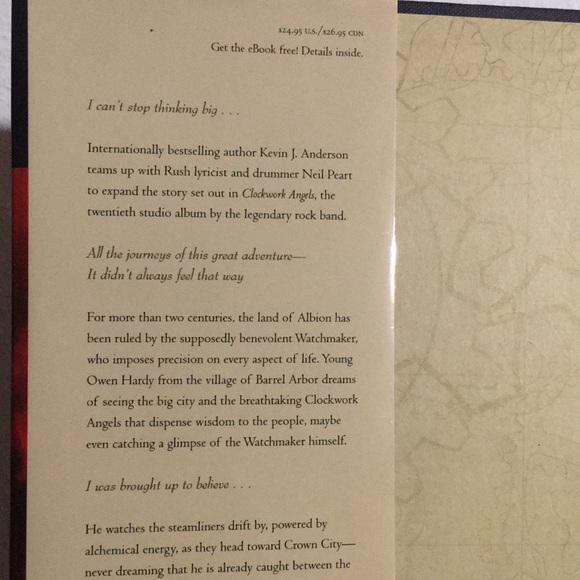 $24.95 U.S./$26.95 CDN
Get the eBook free! Details inside.
I can't stop thinking big . . .
Internationally bestselling author Kevin J. Anderson
teams up with Rush lyricist and drummer Neil Peart
to expand the story set out in Clockwork Angels, the
twentieth studio album by the legendary rock band.
All the journeys of this great adventure—
It didn't always feel that way
For more than two centuries, the land of Albion has
been ruled by the supposedly benevolent Watchmaker,
who imposes precision on every aspect of life. Young
Owen Hardy from the village of Barrel Arbor dreams
of seeing the big city and the breathtaking Clockwork
Angels that dispense wisdom to the people, maybe
even catching a glimpse of the Watchmaker himself.
I was brought up to believe . . .
He watches the steamliners drift by, powered by
alchemical energy, as they head toward Crown City—
never dreaming that he is already caught between the